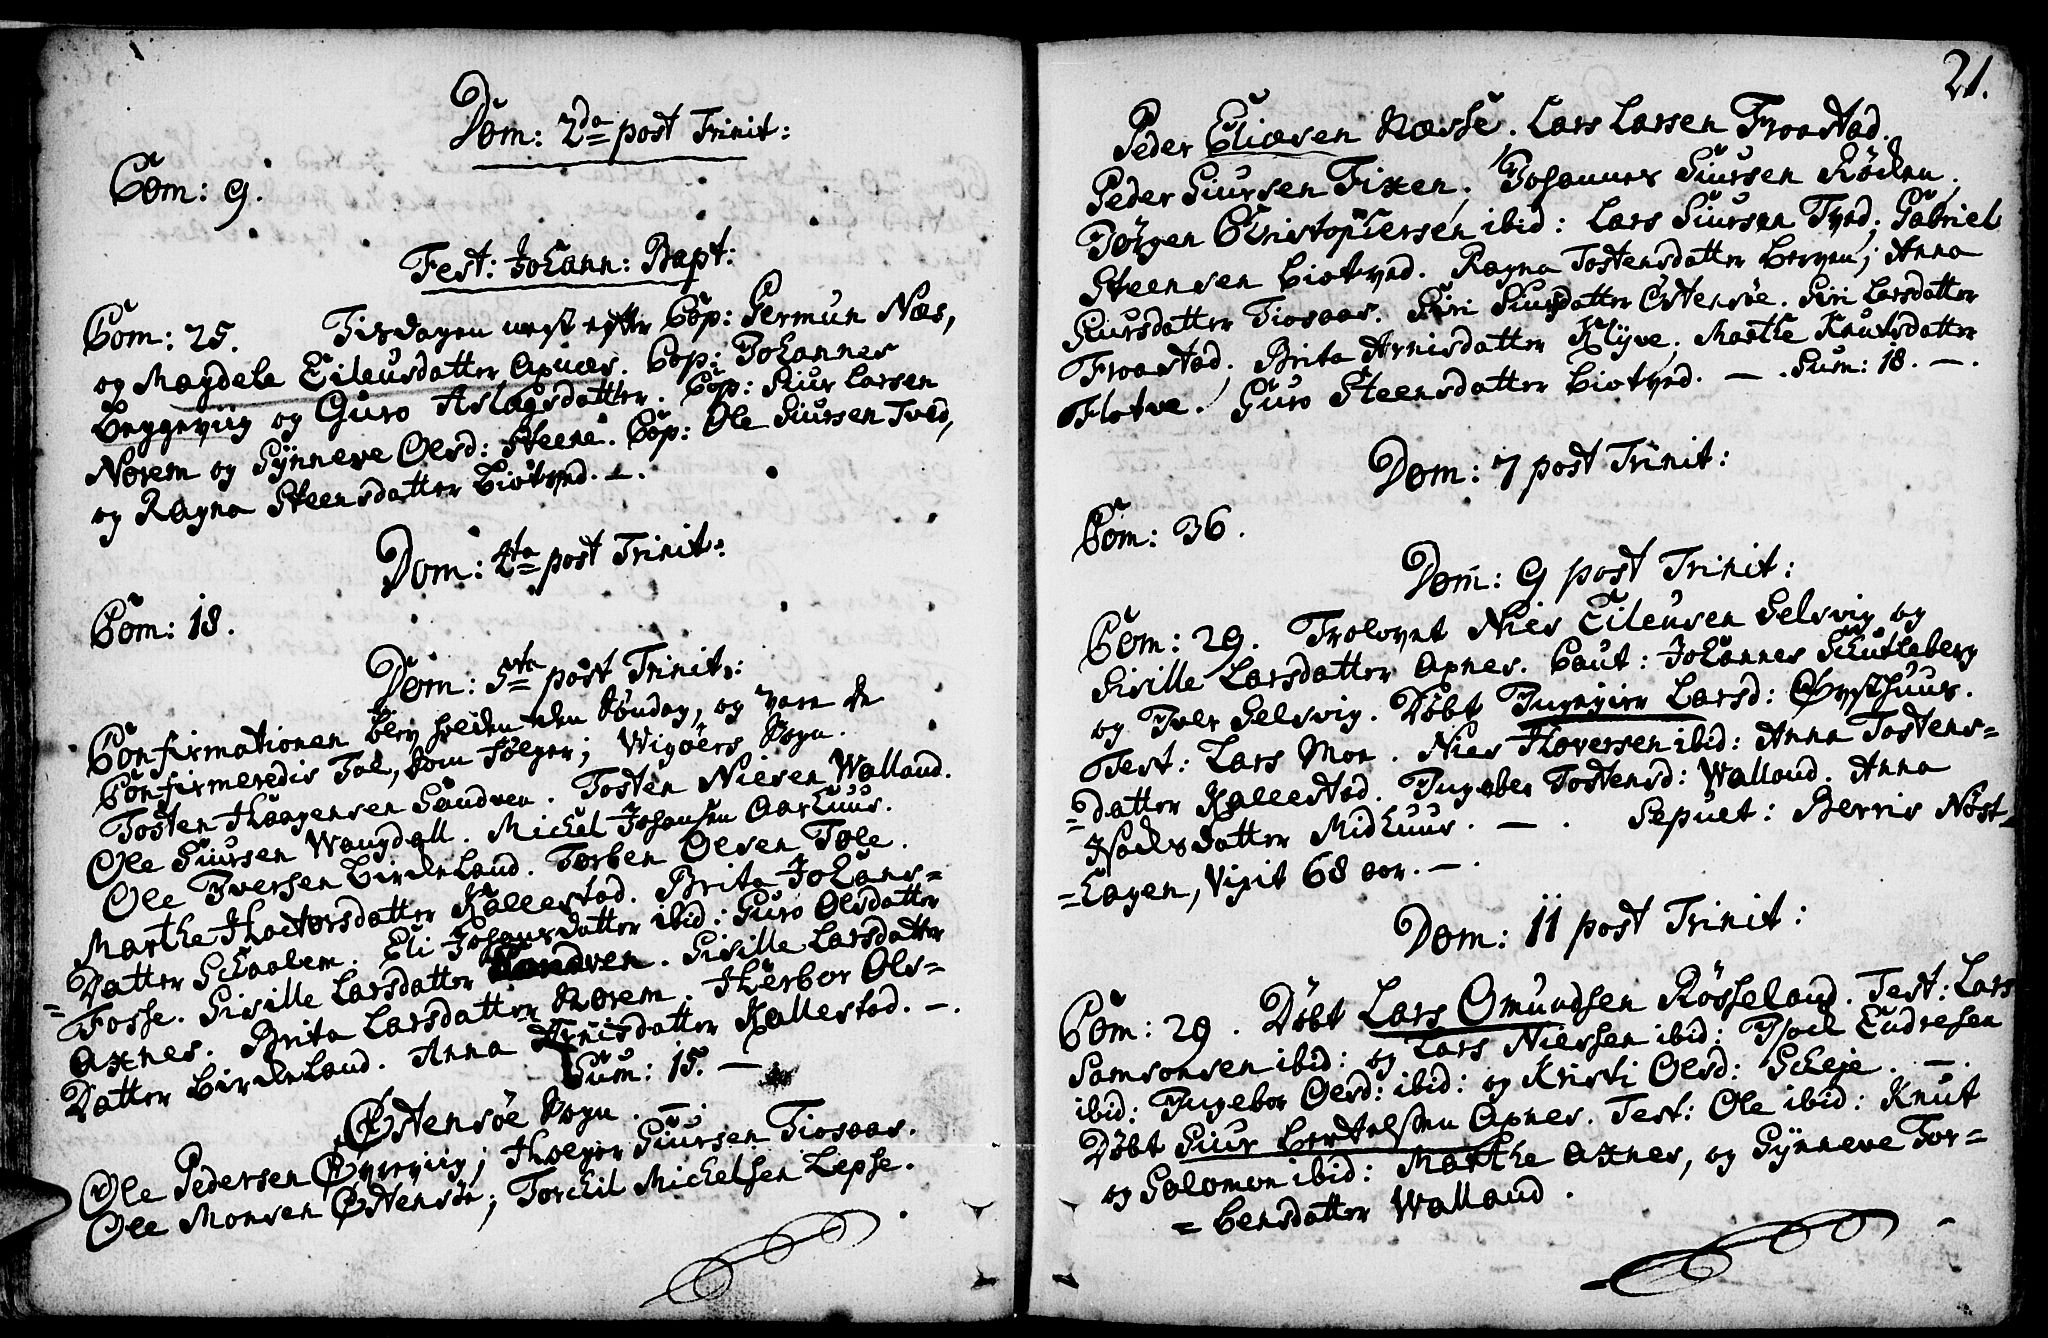 Dom: 2da post Trinit:
Com: 9.
Fest: Johann: Bapt:
Com: 25. Tirsdagen nest efter Cop: Germun Næs,
og Magdela Eileusdatter Axnæs. Cop: Johannes
Bryggeviig og Guro Aslagsdatter. Cop: Siur Larsen
Norem og Synneve Olsd: Steene. Cop: Ole Siursen Tved,
og Ragna Steensdatter Liotved. —.
Dom: 4ta post Trinit:
Com: 18.
Dom: 5ta post Trinit:
Confirmationen blev holden den Søndag, og vare de
Confirmeredis Tal, som følger; Wigøers Sogn.
Tosten Haagensen Sandven. Tosten Nielsen Walland.
Ole Siursen Wangdall. Michel Johansen Aarhuus.
Ole Iversen Birkeland. Torben Olsen Tole.
Marthe Hactorsdatter Kallestad. Brita Johans=
=Datter Schaalem. Eli Johansdatter ibid: Guro Olsdatter
Fosse. Sisille Larsdatter Sandven. Sisille Larsdatter
Axnes. Brita Larsdatter Norem. Herbor Ols=
Datter Birkeland. Anna Arnisdatter Kallestad. —.
Sum: 15. —
Østensøe Sogn. —.
Ole Pedersen Øyreviig; Holger Siursen Tiosaas.
Ole Monsen Østensøe; Torchil Michelsen Lepse.
21.
Peder Eliæsen Næsse. Lars Larsen Froastad.
Peder Siursen Fixen. Johannes Siursen Røcken,
Jørgen Christophersen ibid: Lars Siursen Tved; Gabriel
Steensen Liotved. Ragna Tostensdatter Bergen; Anna
Siursdatter Tiosaas. Siri Siursdatter Østensøe. Siri Larsdatter
Froastad. Brita Arnisdatter Klyve. Marthe Knutsdatter
Flotve. Guro Steensdatter Liotved. — . Sum: 18. —.
Dom: 7 post Trinit:
Com: 36.
Dom: 9 post Trinit:
Com: 29. Trolovet Niels Eileusen Selsvig og
Sisille Larsdatter Axnes. Caut: Johannes Skutleberg
og Iver Selsvig. Døbt Ingegier Larsd: Øysthuus.
Test: Lars Moe. Niels Haversen ibid: Anna Tostens=
=datter Kallestad. Ingebor Tostensd: Walland. Anna
Isacksdatter Midhuus. — . Sepult: Berris Nøst=
=hagen, Vixit 68 aar. —.
Dom: 11 post Trinit:
Com: 29. Døbt Lars Omundsen Røsseland. Test: Lars
Samsonsen ibid: og Lars Nielsen ibid: Isael Endresen
ibid: Ingebor Olsd: ibid: og Kristi Olsd: Scheje. —.
Døbt Siur Bertelsen Axnes. Test: Ole ibid: Knut
og Solomon ibid: Marthe Axnes, og Synneve Tor=
=bensdatter Walland.